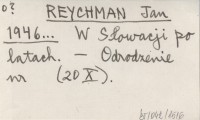 o?
REYCHMAN Jan
1946... W Słowacji po
latach. — Odrodzenie
nr (20 X).